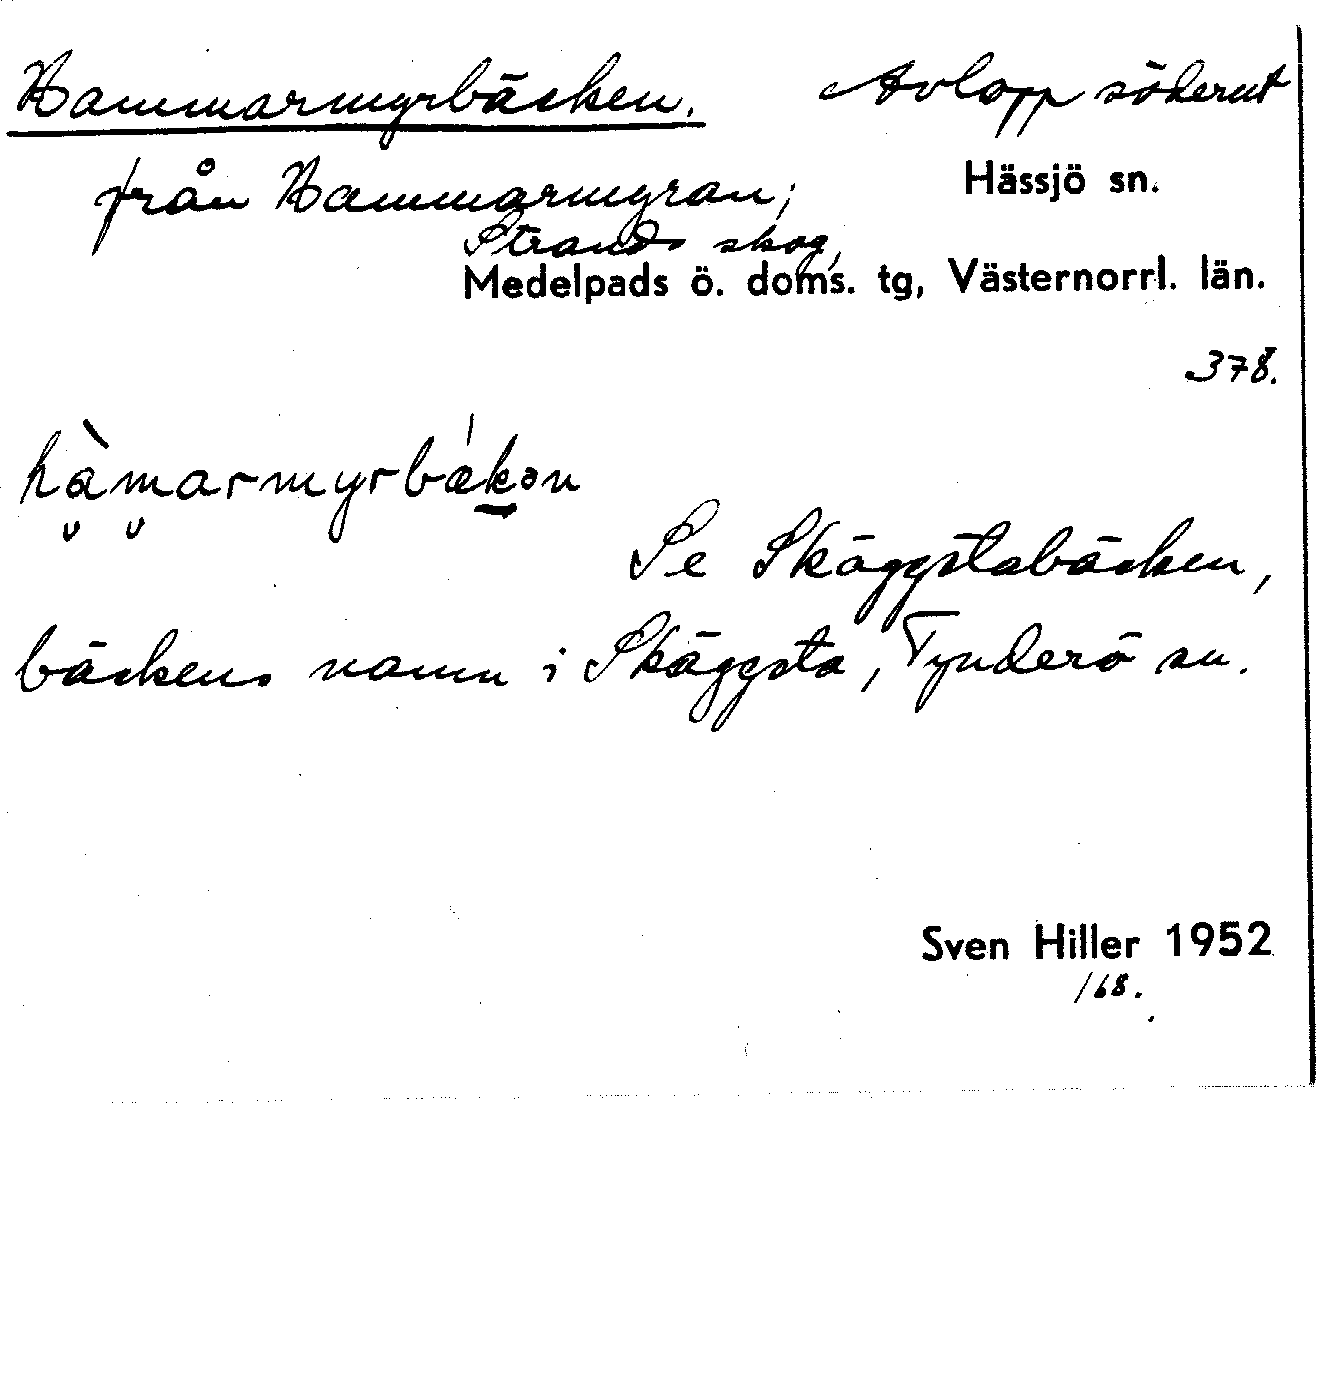 Hammarmyrbäcken. Avlopp söderut
från Hammarmyran; Hässjö sn.
Strands skog,
Medelpads ö. doms. tg, Västernorrl. län.
378.
hàmarmyrbækən
Se Skäggstabäcken,
bäckens namn i Skäggsta, Tynderö sn.
Sven Hiller 1952
/68.